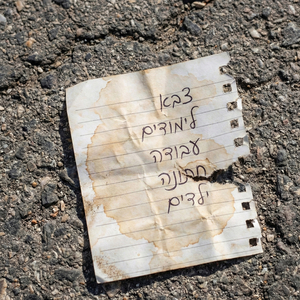 צבא
לימודים
עבודה
חתונה
ילדים